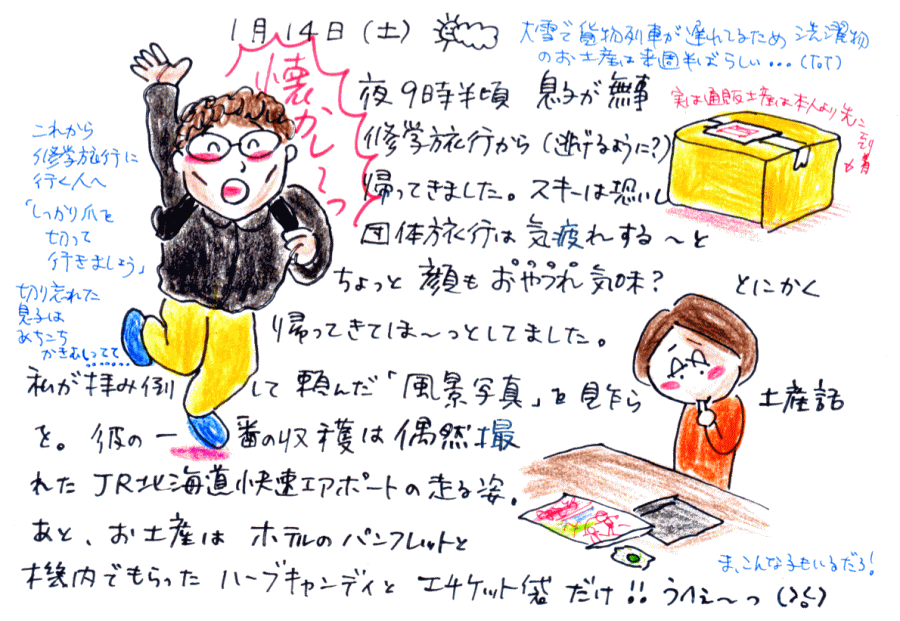 1月14日(土)
大雪で貨物列車が遅れてるため 洗濯物
のお土産は来週半ばらしい…(ToT)
懐かし〜っ
実は通販土産は本人より先に
到着
これから
修学旅行に
行く人へ
「しっかり爪を
切って
行きましょう」
切り忘れた
息子は
あちこち
かきむしってて……
夜9時半頃 息子が無事
修学旅行から(逃げるように?)
帰ってきました。スキーは恐いし
団体旅行は気疲れする〜と
ちょっと顔もおやつれ気味? とにかく
帰ってきてほ〜っとしてました。
私が拝み倒して頼んだ「風景写真」を見ながら 土産話
を。彼の一番の収穫は偶然撮
れたJR北海道快速エアポートの走る姿。
あと、お土産はホテルのパンフレットと
機内でもらったハーブキャンディとエチケット袋だけ!!うへぇ〜っ
ま、こんな子もいるだろ!